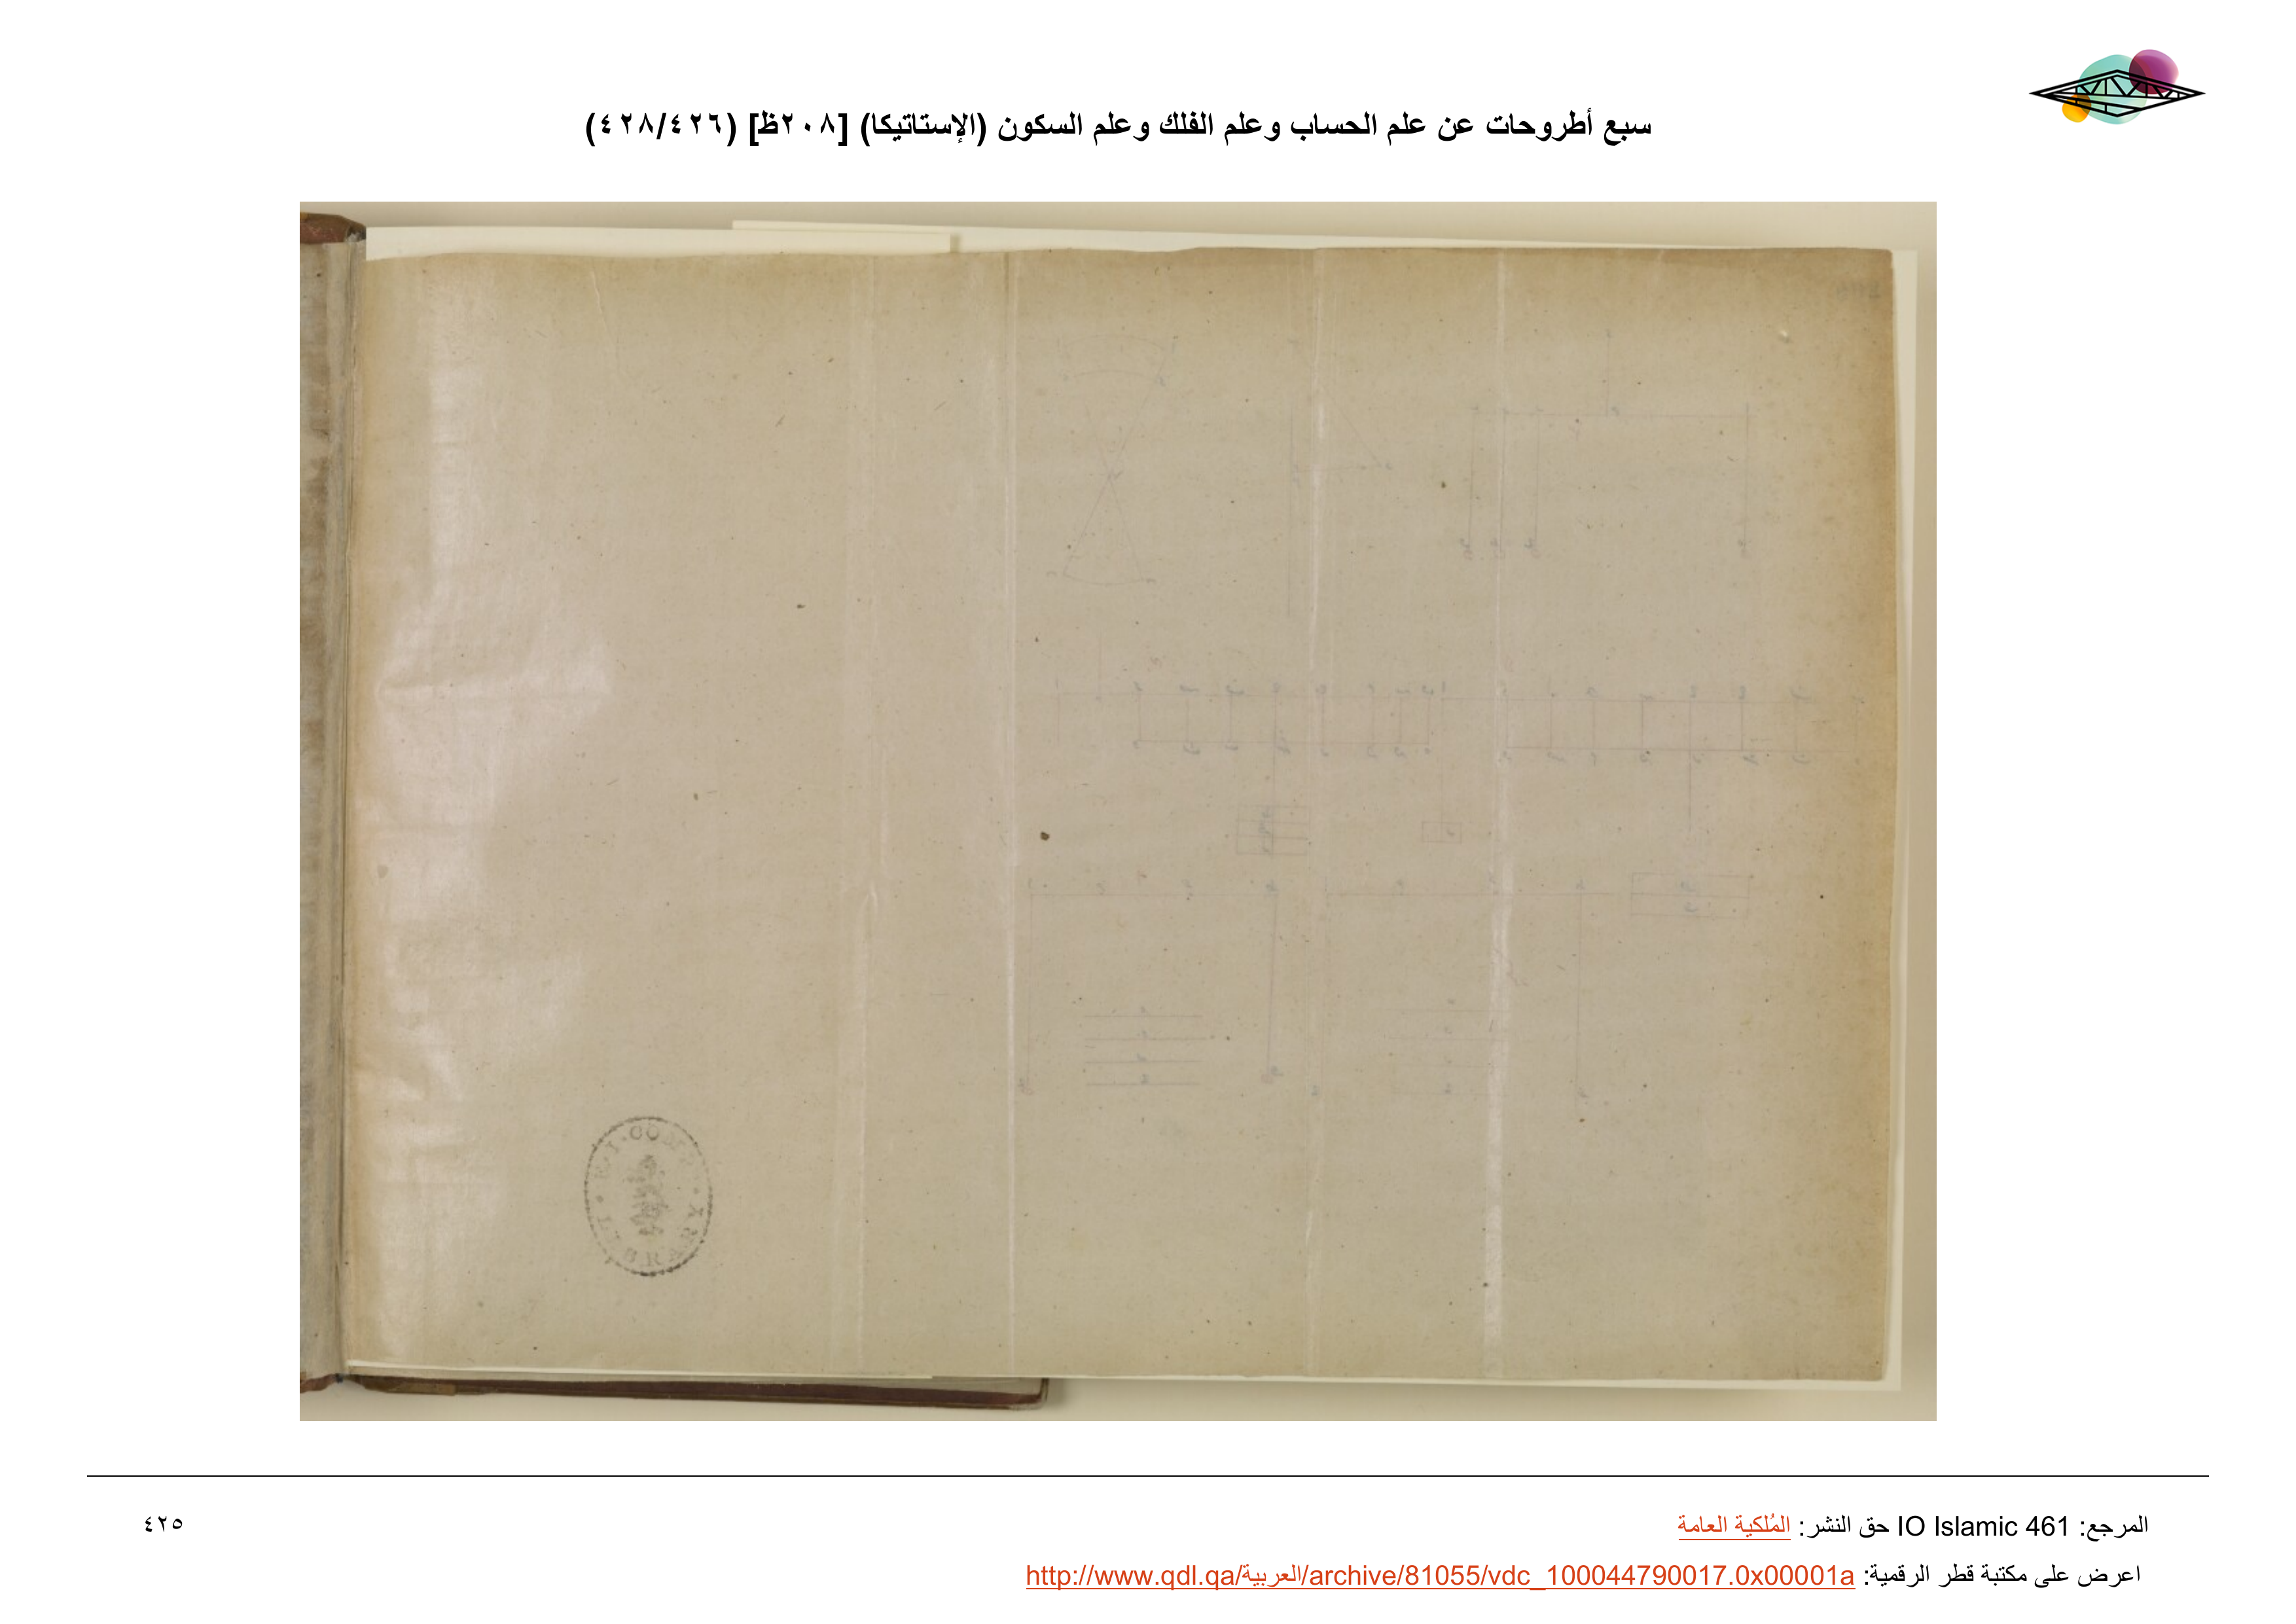 سبع أطروحات عن علم الحساب وعلم الفلك وعلم السكون (الإستاتيكا) [٢٠٨ظ] (٤٢٨/٤٢٦)
E.I. COMP
LIBRARY
المرجع: IO Islamic 461 حق النشر: المُلكية العامة
٤٢٥
اعرض على مكتبة قطر الرقمية: http://www.qdl.qa/العربية/archive/81055/vdc_100044790017.0x00001a